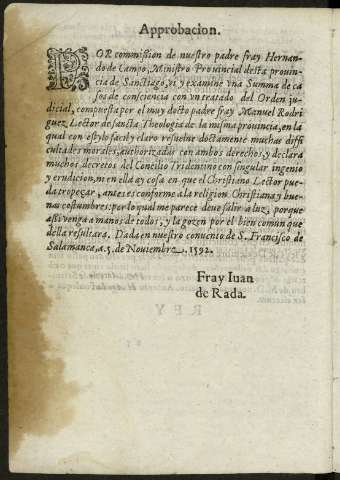 Approbacion.
POR commission de nuestro padre fray Hernan-
do de Campo, Ministro Prouincial desta prouin-
cia de Sanctiago, vi, y examine vna Summa de ca
sos de consciencia con vn tratado del Orden ju-
dicial, compuesta por el muy docto padre fray Manuel Rodri
guez Lector de sancta Theologia de la misma prouincia, en la
qual con estylo facil y claro resuelue doctamente muchas diffi
cultades morales, authorizadas con ambos derechos, y declara
muchos decretos del Concilio Tridentino con singular ingenio
y erudicion, ni en ella ay cosa en que el Christiano Lector pue-
da tropeçar, antes es conforme a la religion Christiana y bue-
nas costumbres: por lo qual me parece deue salir a luz, porque
assi venga a manos de todos, y la gozen por el bien comun que
della resultara. Dada en nuestro conuento de S. Francisco de
Salamanca, a 5. de Nouiembre, 1592.
Fray Iuan
de Rada.